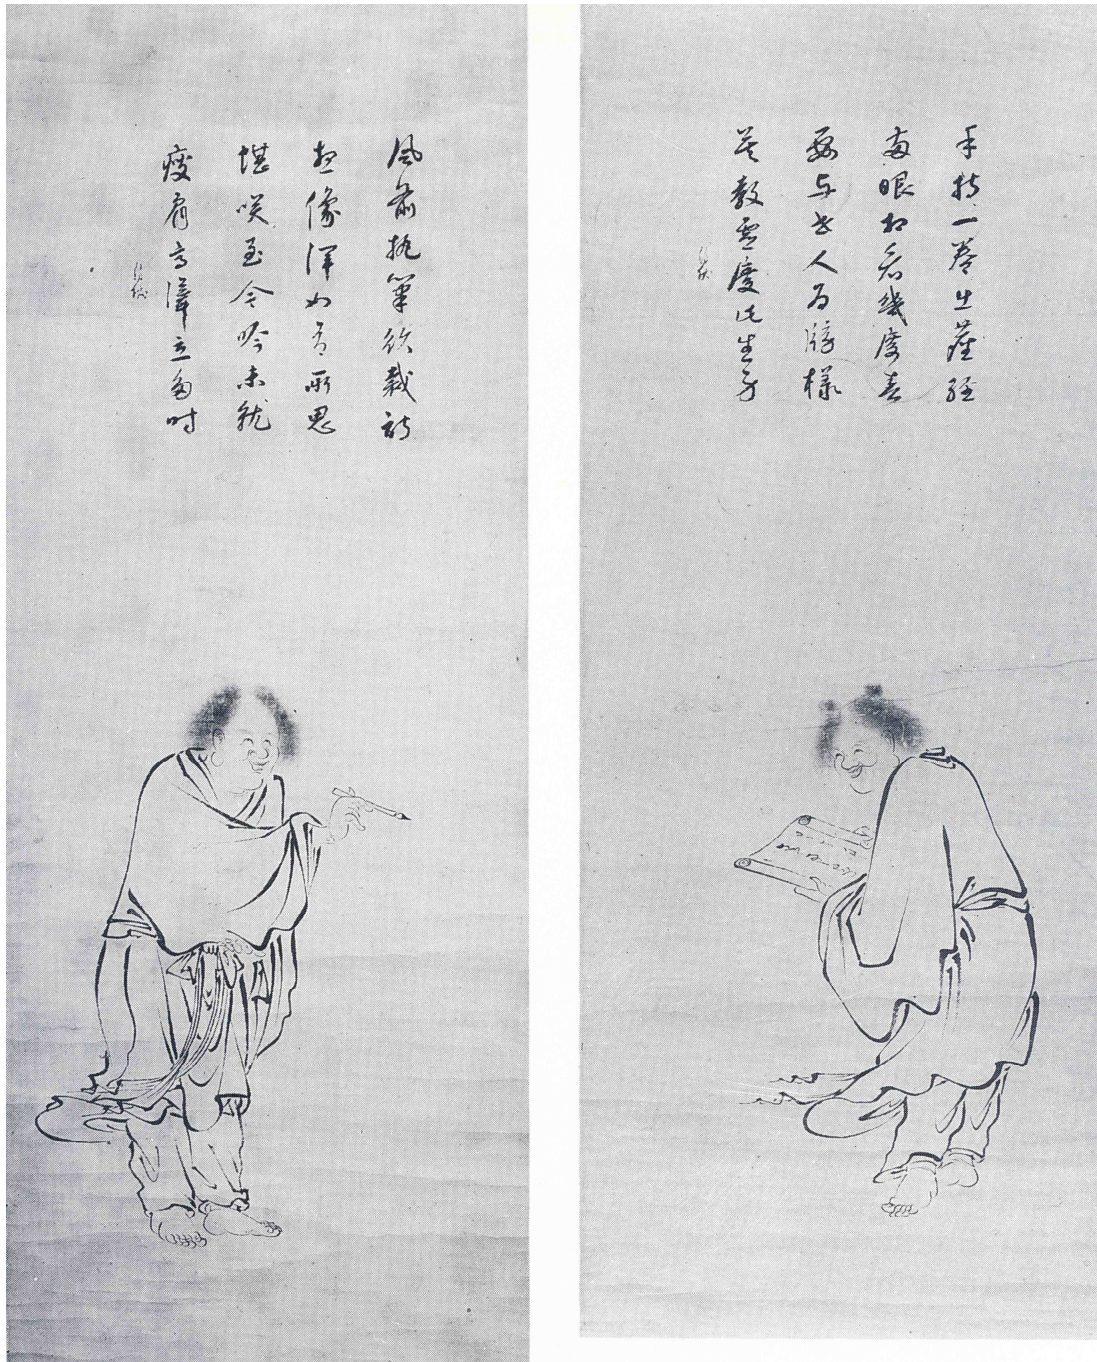 手持一卷出塵経
両眼相看幾度春
要与世人為牓様
莫教虚度此生身
風前執筆欲裁詩
想像渾如有所思
堪咲至今吟未就
瘦肩高聳立多時